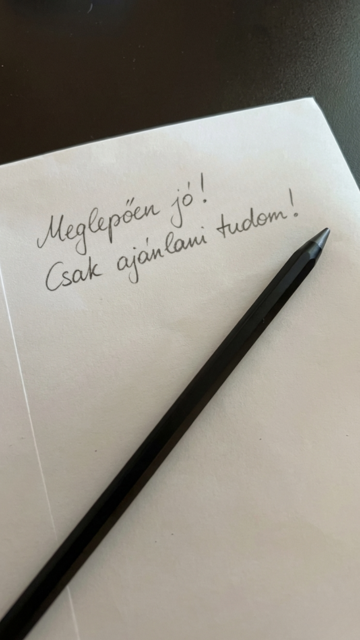 Meglepően jó!
Csak ajánlani tudom!